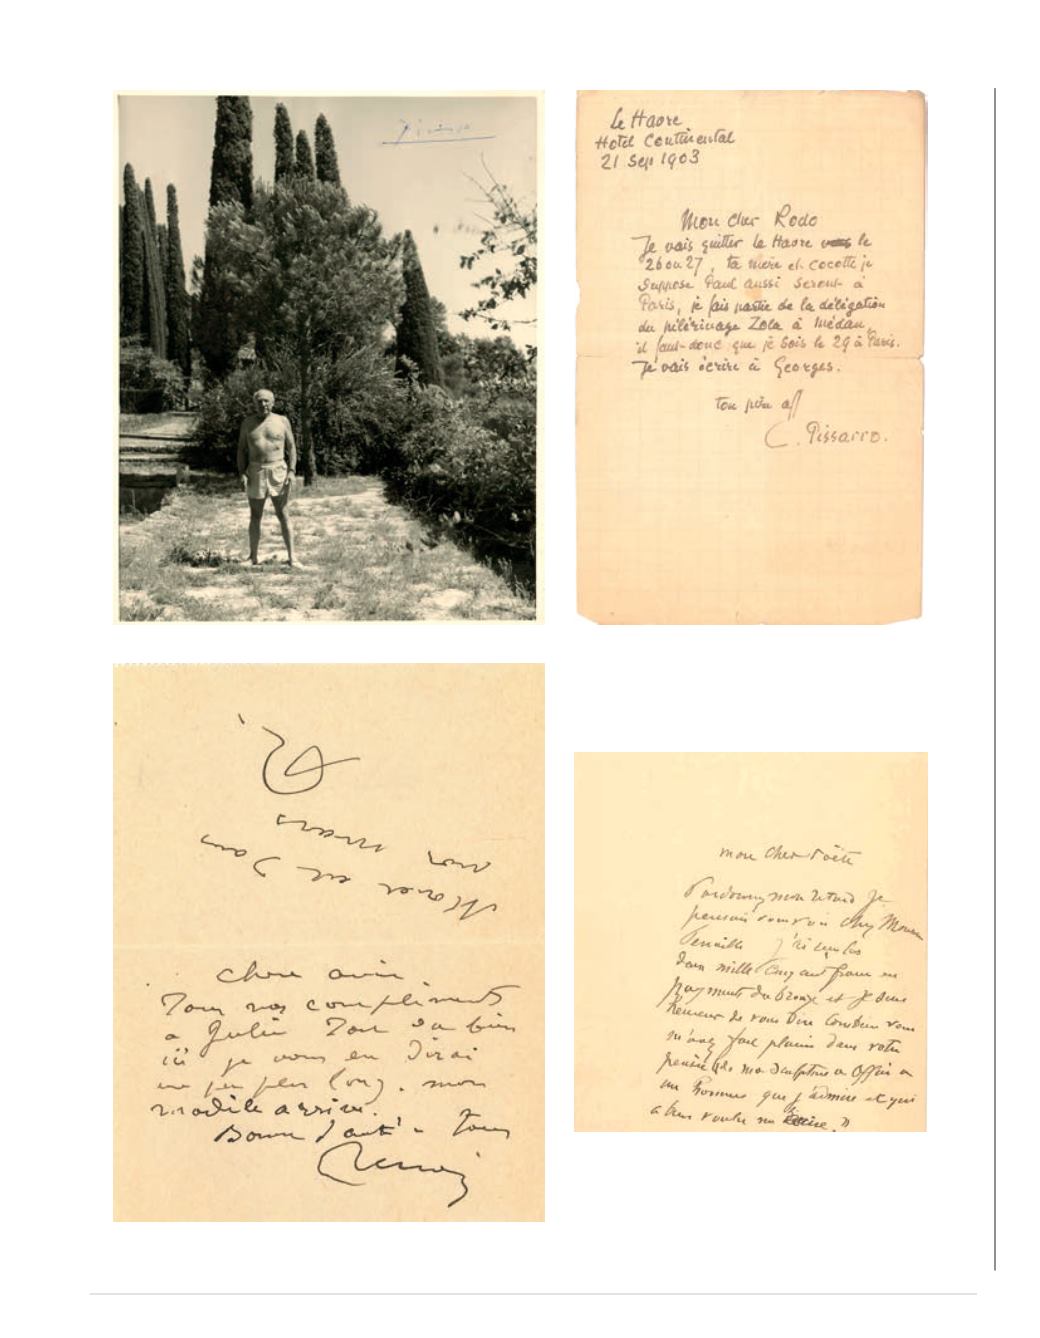 Picasso
Le Havre
Hotel Continental
21 Sep 1903
Mon cher Rodo
Je vais quitter le Havre le
26 ou 27, ta mère et cocotte je
suppose Paul aussi seront à
Paris, je fais partie de la délégation
du pélérinage Zola à Médan,
il faut donc que je sois le 29 à Paris.
Je vais écrire à Georges.
ton père aff
C. Pissarro.
R.
chere amie
Tous nos compliments
a Julie Tout va bien
ici je vous en dirai
un peu plus long. mon
modèle arrive.
Bonne santé a tous
Renoir
mon cher Poëte
Pardonnez mon retard je
pensais vous voir chez
Fenaille j'ai reçu les
deux mille cinq cent francs en
payment du bronze et je suis
heureux de vous dire combien vous
m'avez fait plaisir dans votre
pensée de ma sculpture a offrir a
un homme que j'admire et qui
a bien voulu